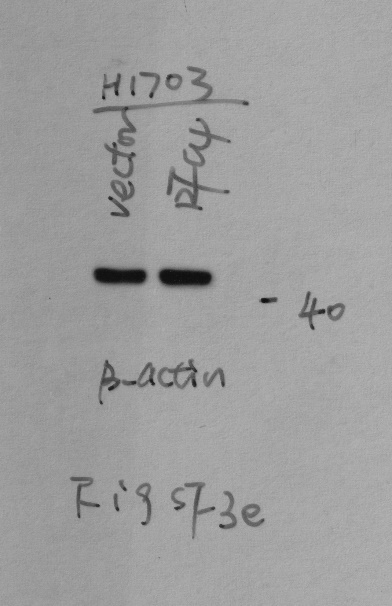 H1703
vector
- 40
β-actin
Fig SF3e